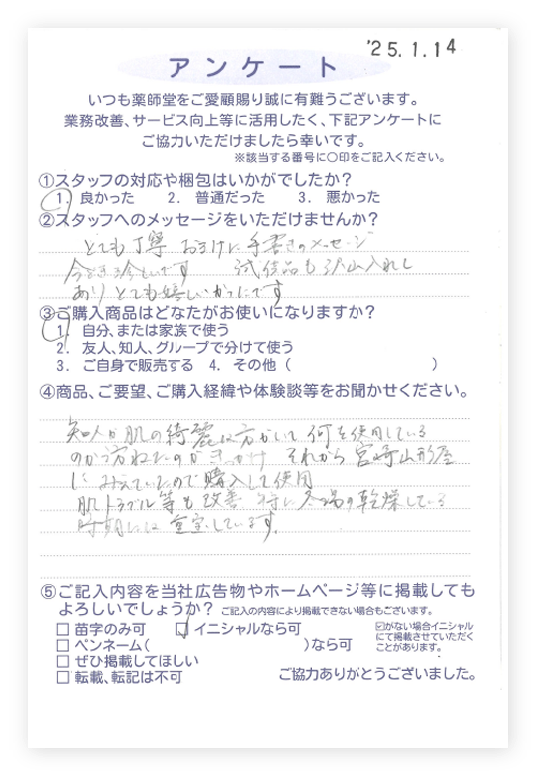 '25.1.14
アンケート
いつも薬師堂をご愛顧賜り誠に有難うございます。
業務改善、サービス向上等に活用したく、下記アンケートに
ご協力いただけましたら幸いです。
※該当する番号に○印をご記入ください。
①スタッフの対応や梱包はいかがでしたか?
1. 良かった 2. 普通だった 3. 悪かった
②スタッフへのメッセージをいただけませんか?
とても丁寧 おまけに 手書きのメッセージ
今どき珍しいです 試供品も沢山入れて
あり とても嬉しいかったです
③ご購入商品はどなたがお使いになりますか?
1. 自分、または家族で使う
2. 友人、知人、グループで分けて使う
3. ご自身で販売する 4. その他( )
④商品、ご要望、ご購入経緯や体験談等をお聞かせください。
知人が肌の綺麗な方がいて 何を使用している
のかう尋ねたのがきっかけ それから 宮崎山形屋
に みえていたので購入して使用
肌トラブル等も改善 特に 冬場の乾燥している
時期には 重宝しています。
⑤ご記入内容を当社広告物やホームページ等に掲載しても
よろしいでしょうか? ご記入の内容により掲載できない場合もございます。
□ 苗字のみ可 ☑ イニシャルなら可
☑がない場合イニシャル
にて掲載させていただく
ことがあります。
□ ペンネーム( )なら可
□ ぜひ掲載してほしい
□ 転載、転記は不可
ご協力ありがとうございました。